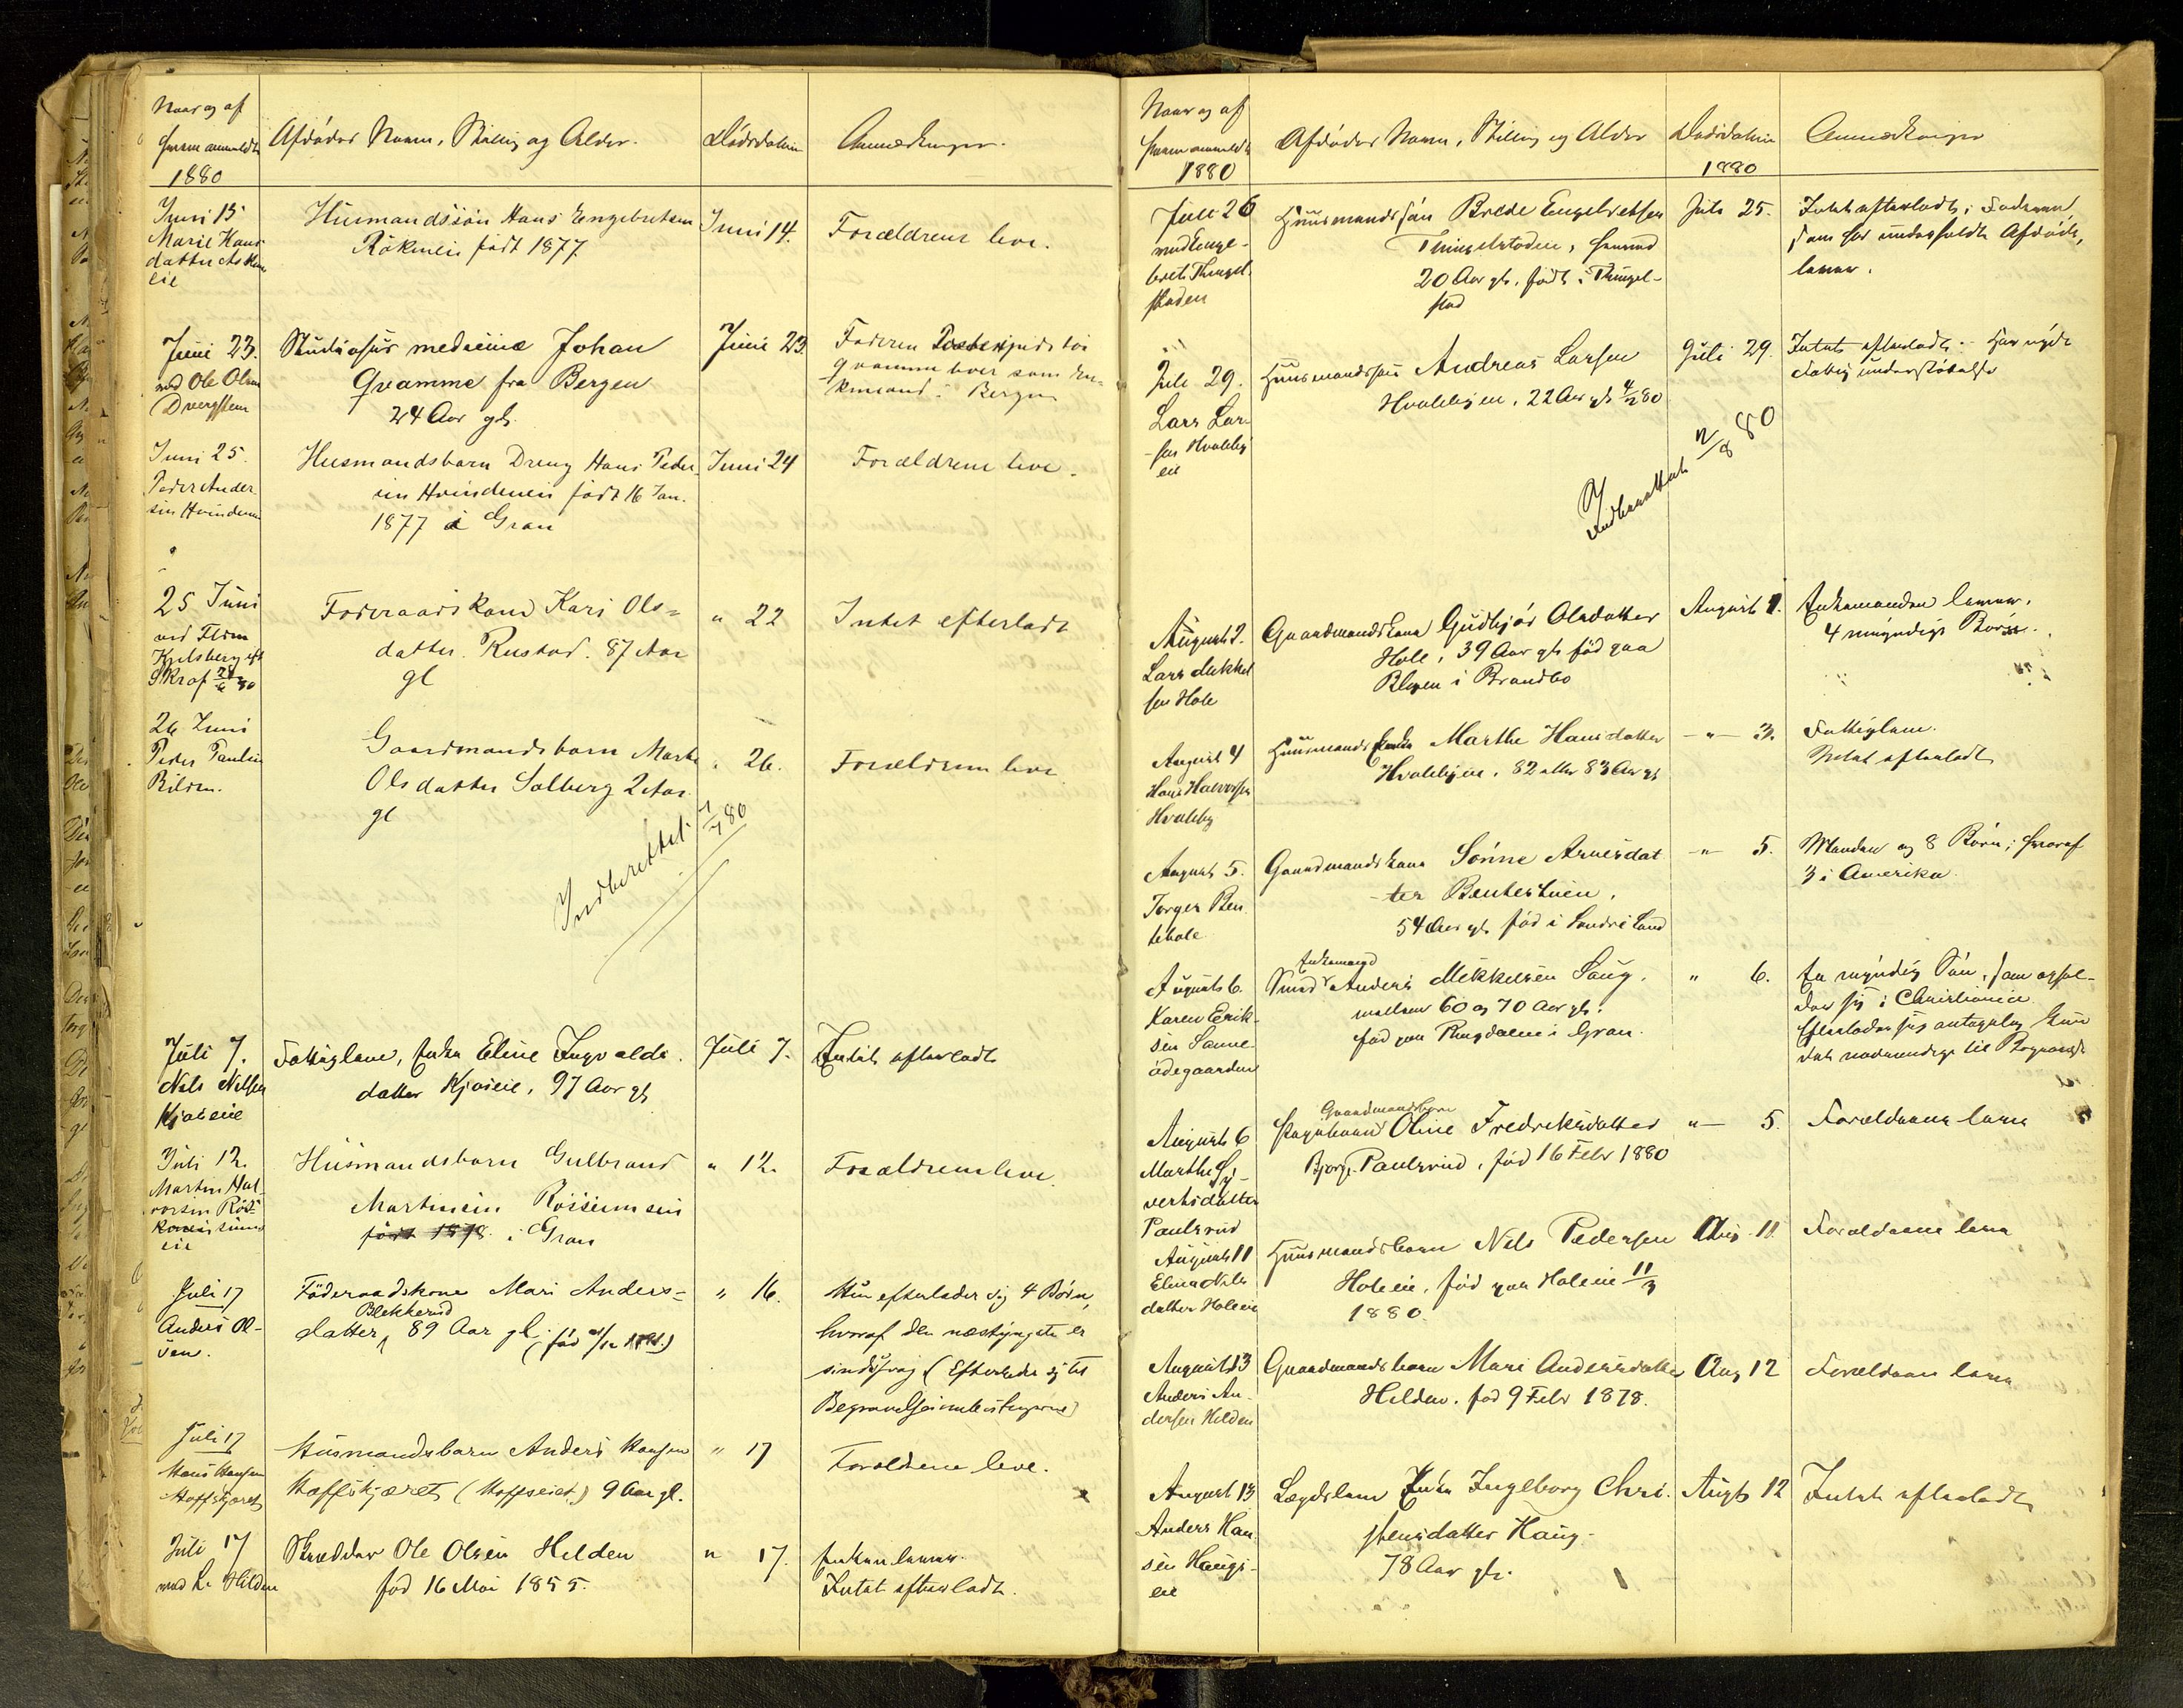 Naar og af
hvem anmeldt
1880
Afdødes Navn, Stilling og Alder.
Dødsdatum
Anmærkninger.
Juni 15
Marie Hans
datter
eie
Husmandssøn Hans Engebretsen
Rökneie født 1877.
Juni 14.
Forældrene leve.
Juni 23.
ved Ole Olsen
Dvergsten
Studiosus medicinæ Johan
Qvamme fra Bergen
24 Aar gl.
Juni 23.
Faderen
Qvamme boer som
i Bergen
Juni 25.
Peder Ander
sen Hvinden
Husmandsbarn Dreng Hans Peder
sen Hvindeneie født 16 Jan.
1877 i Gran
Juni 24
Forældrene leve.
25 Juni
ved
Skraf
Föderaadskone Kari Ols=
datter Rustad. 87 Aar
gl
" 22
Intet efterladt
26 Juni
Peder Paulsen
Bilden.
Gaardmandsbarn Marte
Olsdatter Solberg 2 Aar
gl
" 26.
Forældrene leve
Indberettet 1/7 80
Juli 7.
Nils Nilsen
Kjoseie
Fattiglem, Enke Eline Ingvalds
datter Kjoseie, 97 Aar gl
Juli 7.
Intet efterladt
Juli 12.
Martin Hal
vorsen
eie
Husmandsbarn Gulbrand
Martinsen
født 1878 i Gran
" 12.
Forældrene leve.
Juli 17
Anders Ol-
sen.
Föderaadskone Mari Anders=
Blekkerud
datter, 89 Aar gl.
" 16.
Hun efterlader sig 4 Börn,
hvoraf den næstyngste er
sindssvag (Efterlader sig til
Juli 17
Hans Hansen
Hoffskjæret
Husmandsbarn Anders Hansen
Hoffskjæret (Hoffseiet) 9 Aar gl.
" 17
Forældrene leve.
Juli 17
ved L. Hilden
Skrædder Ole Olsen Hilden
fød 16 Mai 1855.
" 17.
Enken lever.
Intet efterladt.
Naar og af
hvem anmeldt
1880
Afdødes Navn, Stilling og Alder
Dødsdatum
1880
Anmærkninger
Juli 26
ved Enge-
bret Thingel
staden
Huusmandssøn Brede Engebretsen
Thingelstaden,
20 Aar gl. født i Thingel-
stad
Juli 25.
Intet efterladt; Faderen
som har underholdt Afdøde,
lever.
Juli 29.
Lars Lar
sen Hvaleby
eie
Huusmandssøn Andreas Larsen
Hvalebyeie, 22 Aar gl 4/2 80
Juli 29.
Intet efterladt. Har nydt
Fattigunderstøttelse
Indberettet 2/8 80
August 2.
Lars Mikkel
sen Hole
Gaardmandskone Gudbjør Olsdatter
Hole, 39 Aar gl. fød paa
Blegen i Brandbo
August 1.
Enkemanden lever.
4 umyndige Børn.
August 4
Hans Halvorsen
Hvaleby
Huusmands Enke Marthe Hansdatter
Hvalebyeie. 82 eller 83 Aar gl
-"- 3.
Fattiglem.
Intet efterladt
August 5.
Torger Ben
tehole
Gaardmandskone Sönne Arnesdat
ter Bentestuen,
54 Aar gl. fød i Søndre Land
-"- 5.
Manden og 8 Børn; hvoraf
3 i Amerika
August 6.
Karen Erik-
sen Sanne-
ödegaarden
Enkemand
Smed Anders Mikkelsen Haug,
mellem 60 og 70 Aar gl.
fød paa Ringdalen i Gran.
" 6.
En myndig Søn, som ophol-
der sig i Christiania
Efterlader sig antagelig kun
det nødvendige til Begravelse
August 6
Marthe Sy-
vertsdatter
Paulsrud
Gaardmandsbarn
Pigebarn Oline Fredriksdatter
Bjørge Paulsrud, fød 16 Febr 1880
"- 5.
Forældrene leve
August 11
Elina Nils
datter Holeeie
Huusmandsbarn Nels Pedersen
Holeeie, fød paa Holeeie 11/3
1880.
Aug. 11.
Forældrene leve
August 13
Anders An-
dersen Hilden
Gaardmandsbarn Mari Andersdatter
Hilden, fød 9 Febr 1878.
Aug 12
Forældrene leve
August 13
Anders Han
sen Haugs-
eie
Lægdslem Enke Ingeborg Chri-
stensdatter Haug-
78 Aar gl.
Augst 12
Intet efterladt